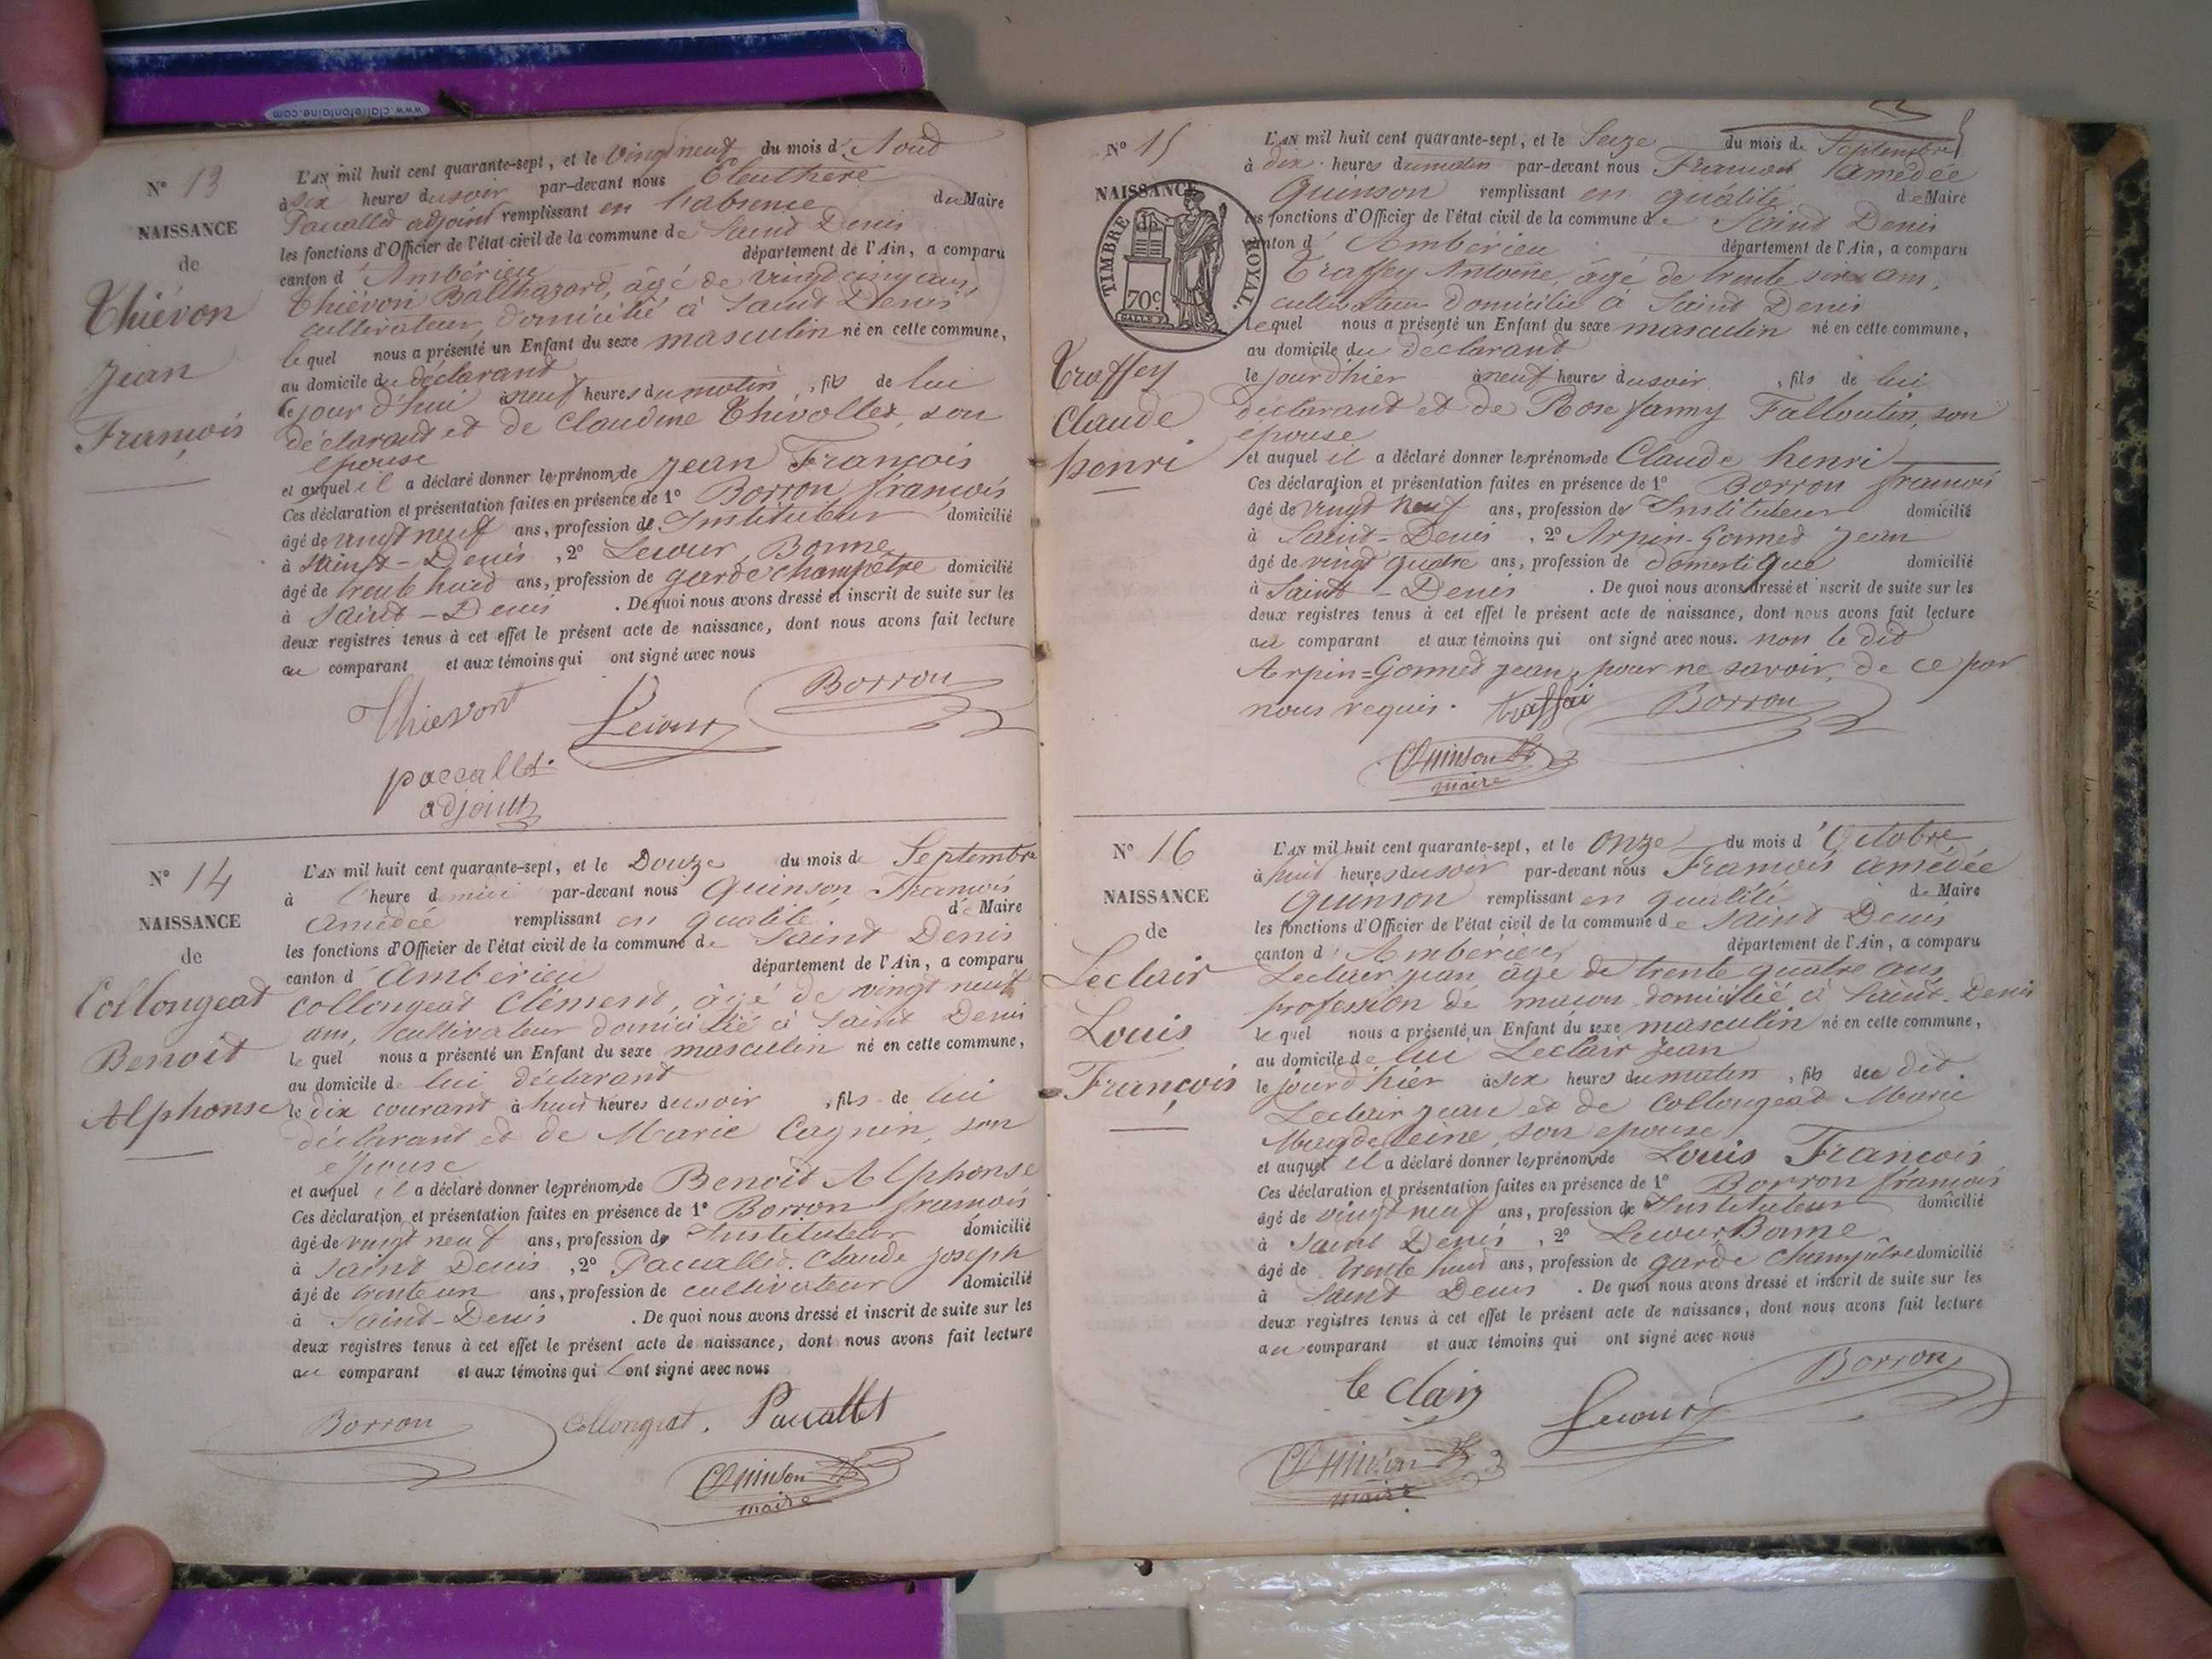 www.clairefontaine.com
N° 13
NAISSANCE
de
Thiévon
Jean
François
L'AN mil huit cent quarante-sept, et le vingt neuf du mois d'Aoud
à six heures du soir par-devant nous Eleuthère
Paccalled adjoint remplissant en l'absence du Maire
les fonctions d'Officier de l'état civil de la commune de Saint Denis
canton d'Ambérieu département de l'Ain, a comparu
Thiévon Balthazard, âgé de vingt cinq ans,
cultivateur, domicilié à Saint Denis
lequel nous a présenté un Enfant du sexe masculin né en cette commune,
au domicile du déclarant
le jour d'hui à neuf heures du matin, fils de lui
déclarant et de Claudine Thévollet, son
épouse
et auquel il a déclaré donner les prénoms de Jean François
Ces déclaration et présentation faites en présence de 1° Borron françois
âgé de vingt neuf ans, profession de Instituteur domicilié
à Saint-Denis, 2° Lecour, Bonne
âgé de trente huid ans, profession de garde champêtre domicilié
à Saint-Denis. De quoi nous avons dressé et inscrit de suite sur les
deux registres tenus à cet effet le présent acte de naissance, dont nous avons fait lecture
au comparant et aux témoins qui ont signé avec nous
Thievont Lecour Borron
paccallet
adjoint
N° 14
NAISSANCE
de
Collongeat
Benoit
Alphonse
L'AN mil huit cent quarante-sept, et le Douze du mois de Septembre
à l'heure de midi par-devant nous Quinson François
Amédée remplissant en qualité de Maire
les fonctions d'Officier de l'état civil de la commune de Saint Denis
canton d'Ambérieu département de l'Ain, a comparu
Collongeat Clément, âgé de vingt neuf
ans, cultivateur domicilié à Saint Denis
lequel nous a présenté un Enfant du sexe masculin né en cette commune,
au domicile de lui déclarant
le dix courant à huit heures du soir, fils de lui
déclarant et de Marie Cagnin, son
épouse
et auquel il a déclaré donner les prénoms de Benoit Alphonse
Ces déclaration et présentation faites en présence de 1° Borron françois
âgé de vingt neuf ans, profession de Instituteur domicilié
à Saint Denis, 2° Paccalled Claude Joseph
âgé de trente un ans, profession de cultivateur domicilié
à Saint-Denis. De quoi nous avons dressé et inscrit de suite sur les
deux registres tenus à cet effet le présent acte de naissance, dont nous avons fait lecture
au comparant et aux témoins qui ont signé avec nous
Borron Collongeat. Paccallet
Quinson
maire
N° 15
NAISSANCE
TIMBRE ROYAL.
70c
Traffey
Claude
henri
L'AN mil huit cent quarante-sept, et le Seize du mois de Septembre
à dix heures du matin par-devant nous François Amédée
Quinson remplissant en qualité de Maire
les fonctions d'Officier de l'état civil de la commune de Saint Denis
canton d'Ambérieu département de l'Ain, a comparu
Traffey Antoine, âgé de trente six ans,
cultivateur domicilié à Saint Denis
lequel nous a présenté un Enfant du sexe masculin né en cette commune,
au domicile du déclarant
le jour d'hier à neuf heures du soir, fils de lui
déclarant et de Rose fanny Falloutin, son
épouse
et auquel il a déclaré donner les prénoms de Claude henri
Ces déclaration et présentation faites en présence de 1° Borron françois
âgé de vingt neuf ans, profession de Instituteur domicilié
à Saint-Denis, 2° Arpin-Gonned Jean
âgé de vingt quatre ans, profession de domestique domicilié
à Saint-Denis. De quoi nous avons dressé et inscrit de suite sur les
deux registres tenus à cet effet le présent acte de naissance, dont nous avons fait lecture
au comparant et aux témoins qui ont signé avec nous. non le dit
Arpin=Gonned Jean, pour ne savoir, de ce par
nous requis. traffai Borron
Quinson
maire
N° 16
NAISSANCE
de
Leclair
Louis
François
L'AN mil huit cent quarante-sept, et le Onze du mois d'Octobre
à huit heures du soir par-devant nous François Amédée
Quinson remplissant en qualité de Maire
les fonctions d'Officier de l'état civil de la commune de Saint Denis
canton d'Ambérieu département de l'Ain, a comparu
Leclair Jean âgé de trente quatre ans
profession de maçon domicilié à Saint-Denis
lequel nous a présenté un Enfant du sexe masculin né en cette commune,
au domicile de lui Leclair Jean
le jour d'hier à six heures du matin, fils du dit
Leclair Jean et de Collongeat Marie
Magdeleine, son épouse
et auquel il a déclaré donner les prénoms de Louis François
Ces déclaration et présentation faites en présence de 1° Borron françois
âgé de vingt neuf ans, profession de Instituteur domicilié
à Saint Denis, 2° Lecour Bonne
âgé de trente huit ans, profession de garde champêtre domicilié
à Saint Denis. De quoi nous avons dressé et inscrit de suite sur les
deux registres tenus à cet effet le présent acte de naissance, dont nous avons fait lecture
au comparant et aux témoins qui ont signé avec nous
le Clair Lecour Borron
Quinson
maire